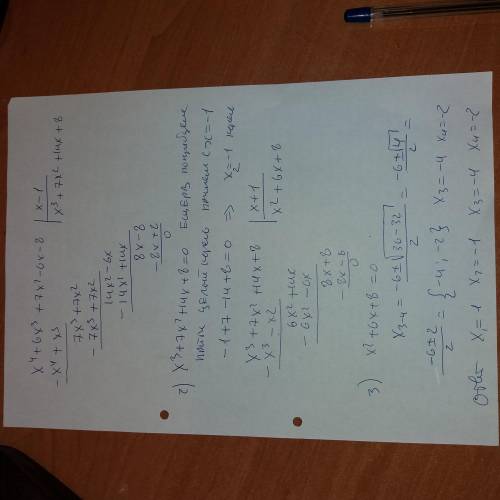 x⁴+6x³+7x²-6x-8 | x-1
-x⁴+x³ | x³+7x²+14x+8
7x³+7x²
-7x³+7x²
14x²-6x
-14x²+14x
8x-8
-8x+8
0
2) x³+7x²+14x+8=0
найти целый корень начнем с x=-1
-1+7-14+8=0 ⇒ x₂=-1 корень
x³+7x²+14x+8 | x+1
-x³-x² | x²+6x+8
6x²+14x
-6x²-6x
8x+8
-8x-8
0
3) x²+6x+8=0
x₃-₄ = -6±√36-32 / 2 = -6±√4 / 2 =
-6±2 / 2 = {-4; -2} x₃=-4 x₄=-2
Ответ x₁=1 x₂=-1 x₃=-4 x₄=-2